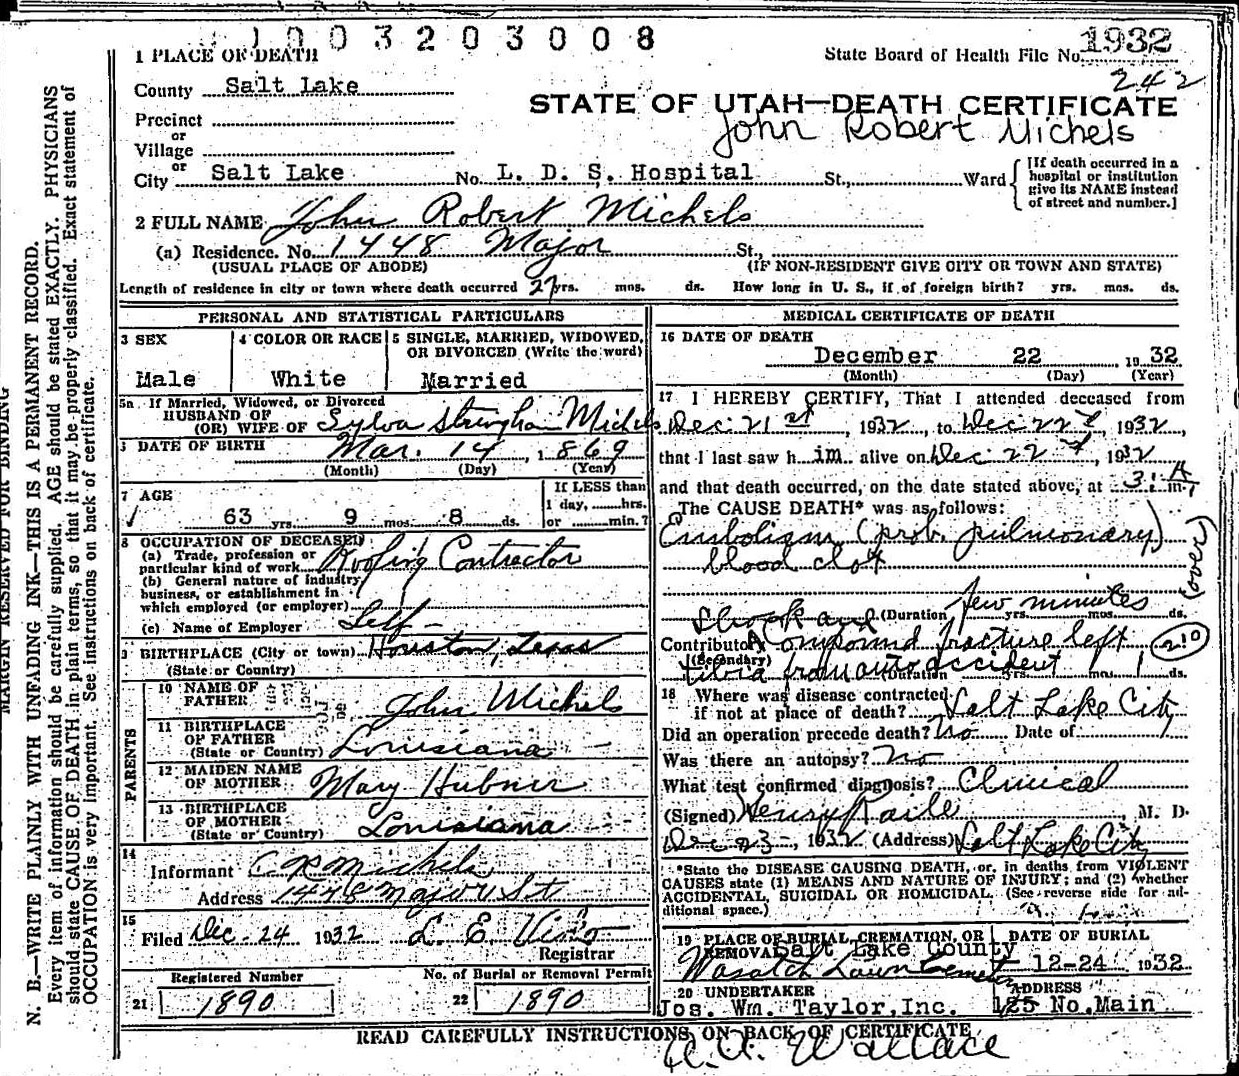 1003203008
1932
State Board of Health File No.
242
1 PLACE OF DEATH
County Salt Lake
STATE OF UTAH—DEATH CERTIFICATE
John Robert Michels
Precinct
or
Village
or
City Salt Lake No. L. D. S. Hospital St., Ward
[If death occurred in a
hospital or institution
give its NAME instead
of street and number.]
2 FULL NAME John Robert Michels
(a) Residence. No. 1448 Major St.,
(USUAL PLACE OF ABODE) (IF NON-RESIDENT GIVE CITY OR TOWN AND STATE)
Length of residence in city or town where death occurred 27 yrs. mos. ds. How long in U. S., if of foreign birth? yrs. mos. ds.
PERSONAL AND STATISTICAL PARTICULARS
3 SEX
Male
4 COLOR OR RACE
White
5 SINGLE, MARRIED, WIDOWED,
OR DIVORCED (Write the word)
Married
5a If Married, Widowed, or Divorced
HUSBAND OF
(OR) WIFE OF Sylva Stringham Michels
DATE OF BIRTH Mar. 14, 1869
(Month) (Day) (Year)
7 AGE
63 yrs. 9 mos. 8 ds.
If LESS than
1 day, hrs.
or min.?
8 OCCUPATION OF DECEASED
(a) Trade, profession or
particular kind of work Roofing Contractor
(b) General nature of Industry
business, or establishment in
which employed (or employer)
(c) Name of Employer Self
BIRTHPLACE (City or town) Houston, Texas
(State or Country)
PARENTS
10 NAME OF
FATHER John Michels
11 BIRTHPLACE
OF FATHER
(State or Country) Louisiana
12 MAIDEN NAME
OF MOTHER Mary Hubner
13 BIRTHPLACE
OF MOTHER
(State or Country) Louisiana
14
Informant C R Michels
Address 1448 Major St
15
Filed Dec. 24 1932 L. E.
Registrar
Registered Number
21 1890
No. of Burial or Removal Permit
22 1890
MEDICAL CERTIFICATE OF DEATH
16 DATE OF DEATH
December 22 1932
(Month) (Day) (Year)
17 I HEREBY CERTIFY, That I attended deceased from
Dec. 21st, 1932, to Dec 22d, 1932,
that I last saw h im alive on Dec 22d, 1932
and that death occurred, on the date stated above, at 3: A m.
The CAUSE DEATH* was as follows:
Embolism (prob. pulmonary)
blood clot
(over)
(Duration few minutes yrs. mos. ds.
Shock and
Contributory Compound fracture left
210
(Secondary)
tibia from auto accident
(Duration yrs. mos. 1 ds.
18 Where was disease contracted
if not at place of death? Salt Lake City
Did an operation precede death? No Date of
Was there an autopsy? no
What test confirmed diagnosis? Clinical
(Signed) Henry Raile, M. D.
Dec 23, 1932 (Address) Salt Lake City
*State the DISEASE CAUSING DEATH, or, in deaths from VIOLENT
CAUSES state (1) MEANS AND NATURE OF INJURY; and (2) whether
ACCIDENTAL, SUICIDAL OR HOMICIDAL. (See reverse side for ad-
ditional space.)
19 PLACE OF BURIAL, CREMATION, OR
REMOVAL Salt Lake County
Wasatch Lawn Cemetery
DATE OF BURIAL
12-24 1932
20 UNDERTAKER
Jos. Wm. Taylor, Inc.
ADDRESS
125 No. Main
READ CAREFULLY INSTRUCTIONS ON BACK OF CERTIFICATE
Wallace
MARGIN RESERVED FOR BINDING
N. B.—WRITE PLAINLY WITH UNFADING INK—THIS IS A PERMANENT RECORD.
Every item of information should be carefully supplied. AGE should be stated EXACTLY. PHYSICIANS
should state CAUSE OF DEATH in plain terms, so that it may be properly classified. Exact statement of
OCCUPATION is very important. See instructions on back of certificate.